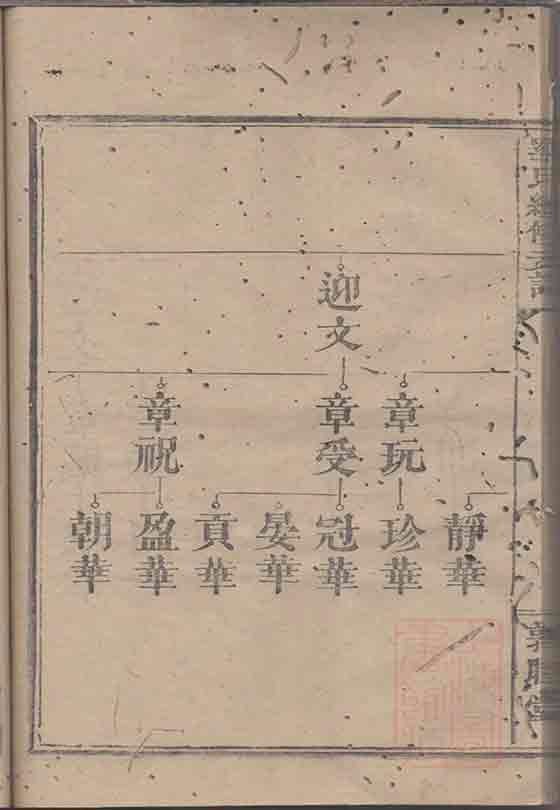 迎文
章玩
章受
章祝
靜華
珍華
冠華
晏華
貢華
盈華
朝華